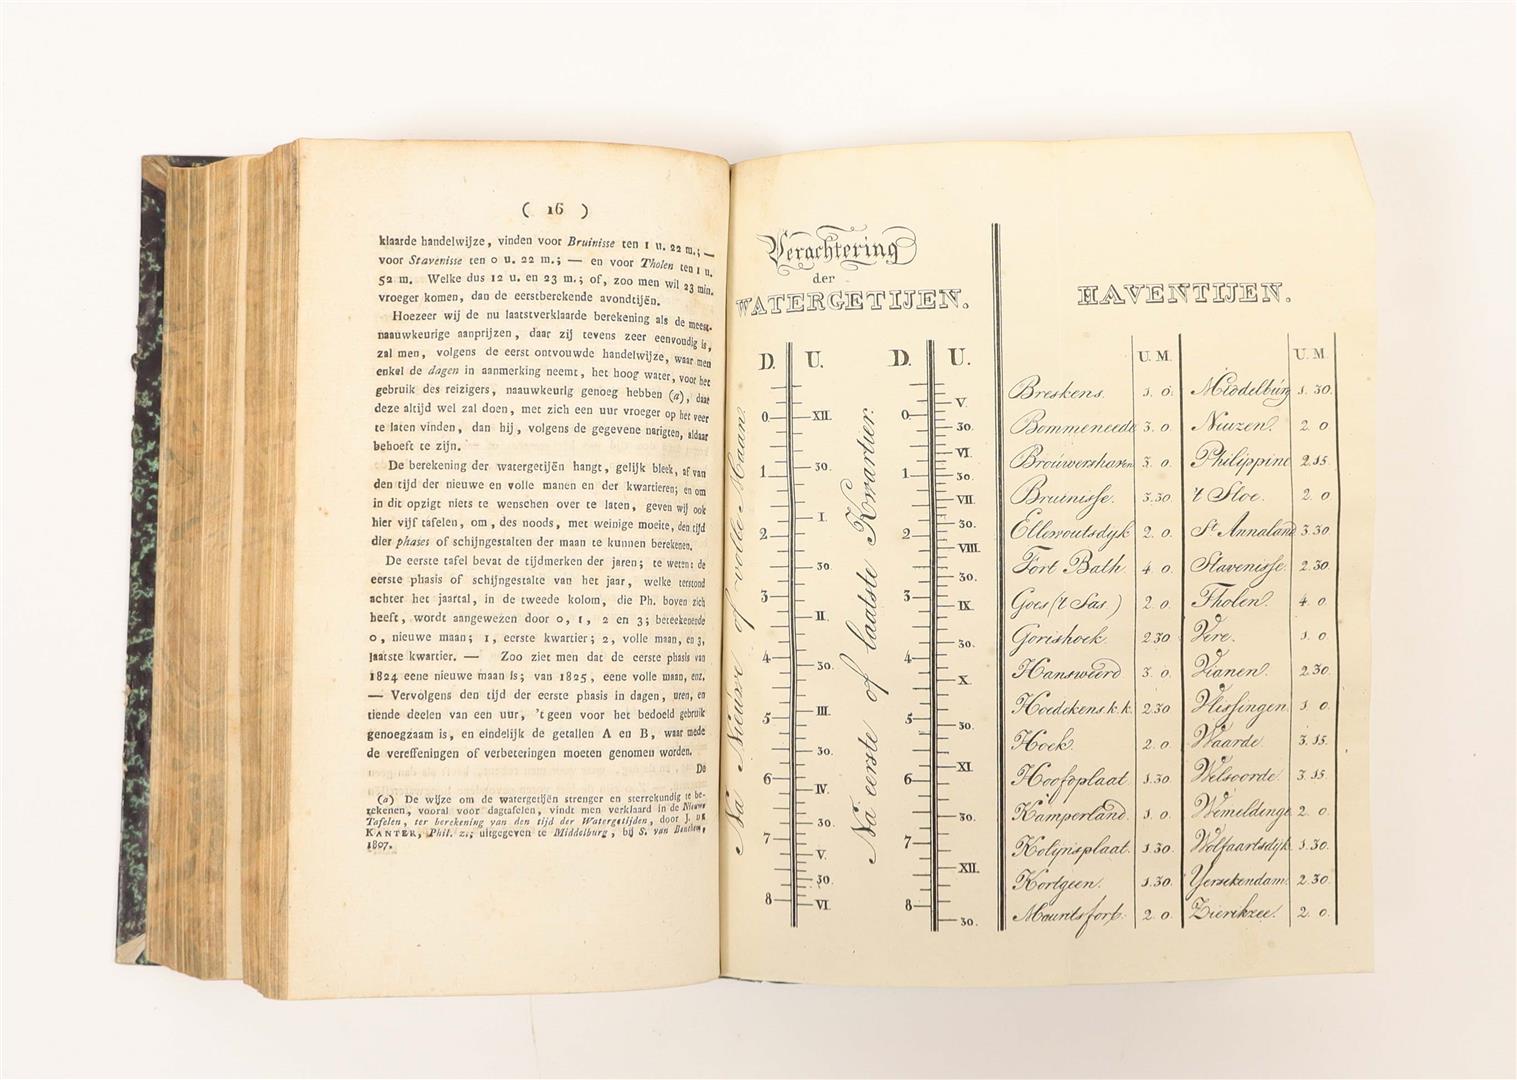 ( 16 )
klaarde handelwijze, vinden voor Bruinisse ten 1 u. 22 m.; —
voor Stavenisse ten 0 u. 22 m.; — en voor Tholen ten 1 u.
52 m. Welke dus 12 u. en 23 m.; of, zoo men wil 23 min.
vroeger komen, dan de eerstberekende avondtijën.
Hoezeer wij de nu laatstverklaarde berekening als de meest-
naauwkeurige aanprijzen, daar zij tevens zeer eenvoudig is,
zal men, volgens de eerst ontvouwde handelwijze, waar men
enkel de dagen in aanmerking neemt, het hoog water, voor het
gebruik des reizigers, naauwkeurig genoeg hebben (a), daar
deze altijd wel zal doen, met zich een uur vroeger op het veer
te laten vinden, dan hij, volgens de gegevene narigten, aldaar
behoeft te zijn.
De berekening der watergetijën hangt, gelijk bleek, af van
den tijd der nieuwe en volle manen en der kwartieren; en om
in dit opzigt niets te wenschen over te laten, geven wij ook
hier vijf tafelen, om, des noods, met weinige moeite, den tijd
dier phases of schijngestalten der maan te kunnen berekenen.
De eerste tafel bevat de tijdmerken der jaren; te weten: de
eerste phasis of schijngestalte van het jaar, welke terstond
achter het jaartal, in de tweede kolom, die Ph. boven zich
heeft, wordt aangewezen door 0, 1, 2 en 3; beteekenende
0, nieuwe maan; 1, eerste kwartier; 2, volle maan, en 3,
laatste kwartier. — Zoo ziet men dat de eerste phasis van
1824 eene nieuwe maan is; van 1825, eene volle maan, enz.
— Vervolgens den tijd der eerste phasis in dagen, uren, en
tiende deelen van een uur, 't geen voor het bedoeld gebruik
genoegzaam is, en eindelijk de getallen A en B, waar mede
de vereffeningen of verbeteringen moeten genomen worden.
De
(a) De wijze om de watergetijën strenger en sterrekundig te be-
rekenen, vooral voor dagtafelen, vindt men verklaard in de Nieuwe
Tafelen, ter berekening van den tijd der Watergetijden, door J. DE
KANTER, Phil. z.; uitgegeven te Middelburg, bij S. van Benthem,
1807.
Verachtering
der
WATERGETIJEN.
D. U.
Na Nieuwe of volle Maan.
0 XII.
1 30.
2 I.
30.
3 II.
4 30.
5 III.
30.
6 IV.
30.
7 V.
30.
8 VI.
D. U.
Na eerste of laadste Kwartier.
0 V.
30.
1 VI.
30.
VII.
2 30.
VIII.
3 30.
IX.
30.
4 X.
5 30.
6 XI.
30.
7 XII.
8 30.
HAVENTIJEN.
U. M. U. M.
Breskens. 1. 0. Middelburg 1. 30.
Bommeneede 3. 0. Niuzen. 2. 0
Brouwershaven 3. 0. Philippine 2.15.
Bruinisse. 3.30. 't Sloe. 2. 0
Ellewoutsdyk 2. 0. St. Annaland 3.30
Fort Bath 4. 0. Stavenisse. 2.30.
Goes ('t Sas.) 2. 0. Tholen. 4. 0.
Gorishoek 2.30 Vere. 1. 0
Hansweerd 3. 0. Vianen. 2.30.
Hoedekens.k.k. 2.30 Vlissingen 1. 0
Hoek. 2. 0. Waarde. 3.15.
Hoofdplaat 1.30. Welvoorde 3.15.
Kamperland. 1. 0. Wemeldinge 2. 0.
Kolijnsplaat. 1.30. Wolfaartsdyk 1.30.
Kortgeen. 1.30. Yersekendam. 2.30.
Mauritsfort. 2. 0. Zierikzee. 2. 0.